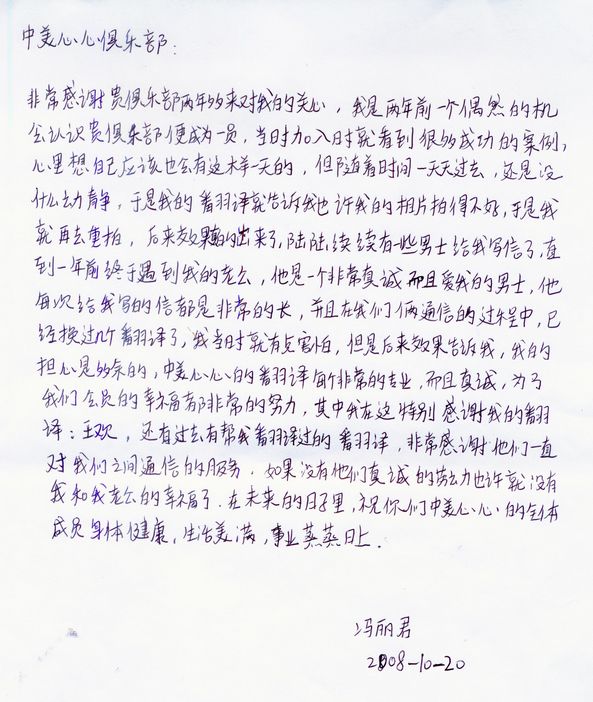 中美心心俱乐部：
非常感谢贵俱乐部两年多来对我的关心，我是两年前一个偶然的机
会认识贵俱乐部便成为一员，当时加入时就看到很多成功的案例，
心里想自己应该也会有这样一天的，但随着时间一天天过去，还是没
什么动静，于是我的翻译就告诉我也许我的相片拍得不好，于是我
就再去重拍，后来效果真的出来了，陆陆续续有一些男士给我写信了，直
到一年前终于遇到我的老公，他是一个非常真诚而且爱我的男士，他
每次给我写的信都是非常的长，并且在我们俩通信的过程中，已
经换过几个翻译了，我当时就有点害怕，但是后来效果告诉我，我的
担心是多余的，中美心心的翻译每个非常的专业，而且真诚，为了
我们会员的幸福都非常的努力，其中我在这特别感谢我的翻
译：王欢，还有过去有帮我翻译过的翻译，非常感谢他们一直
对我们之间通信的服务．如果没有他们真诚的劳力也许就没有
我和我老公的幸福了．在未来的日子里，祝你们中美心心的全体
成员身体健康，生活美满，事业蒸蒸日上．
冯丽君
2008-10-20